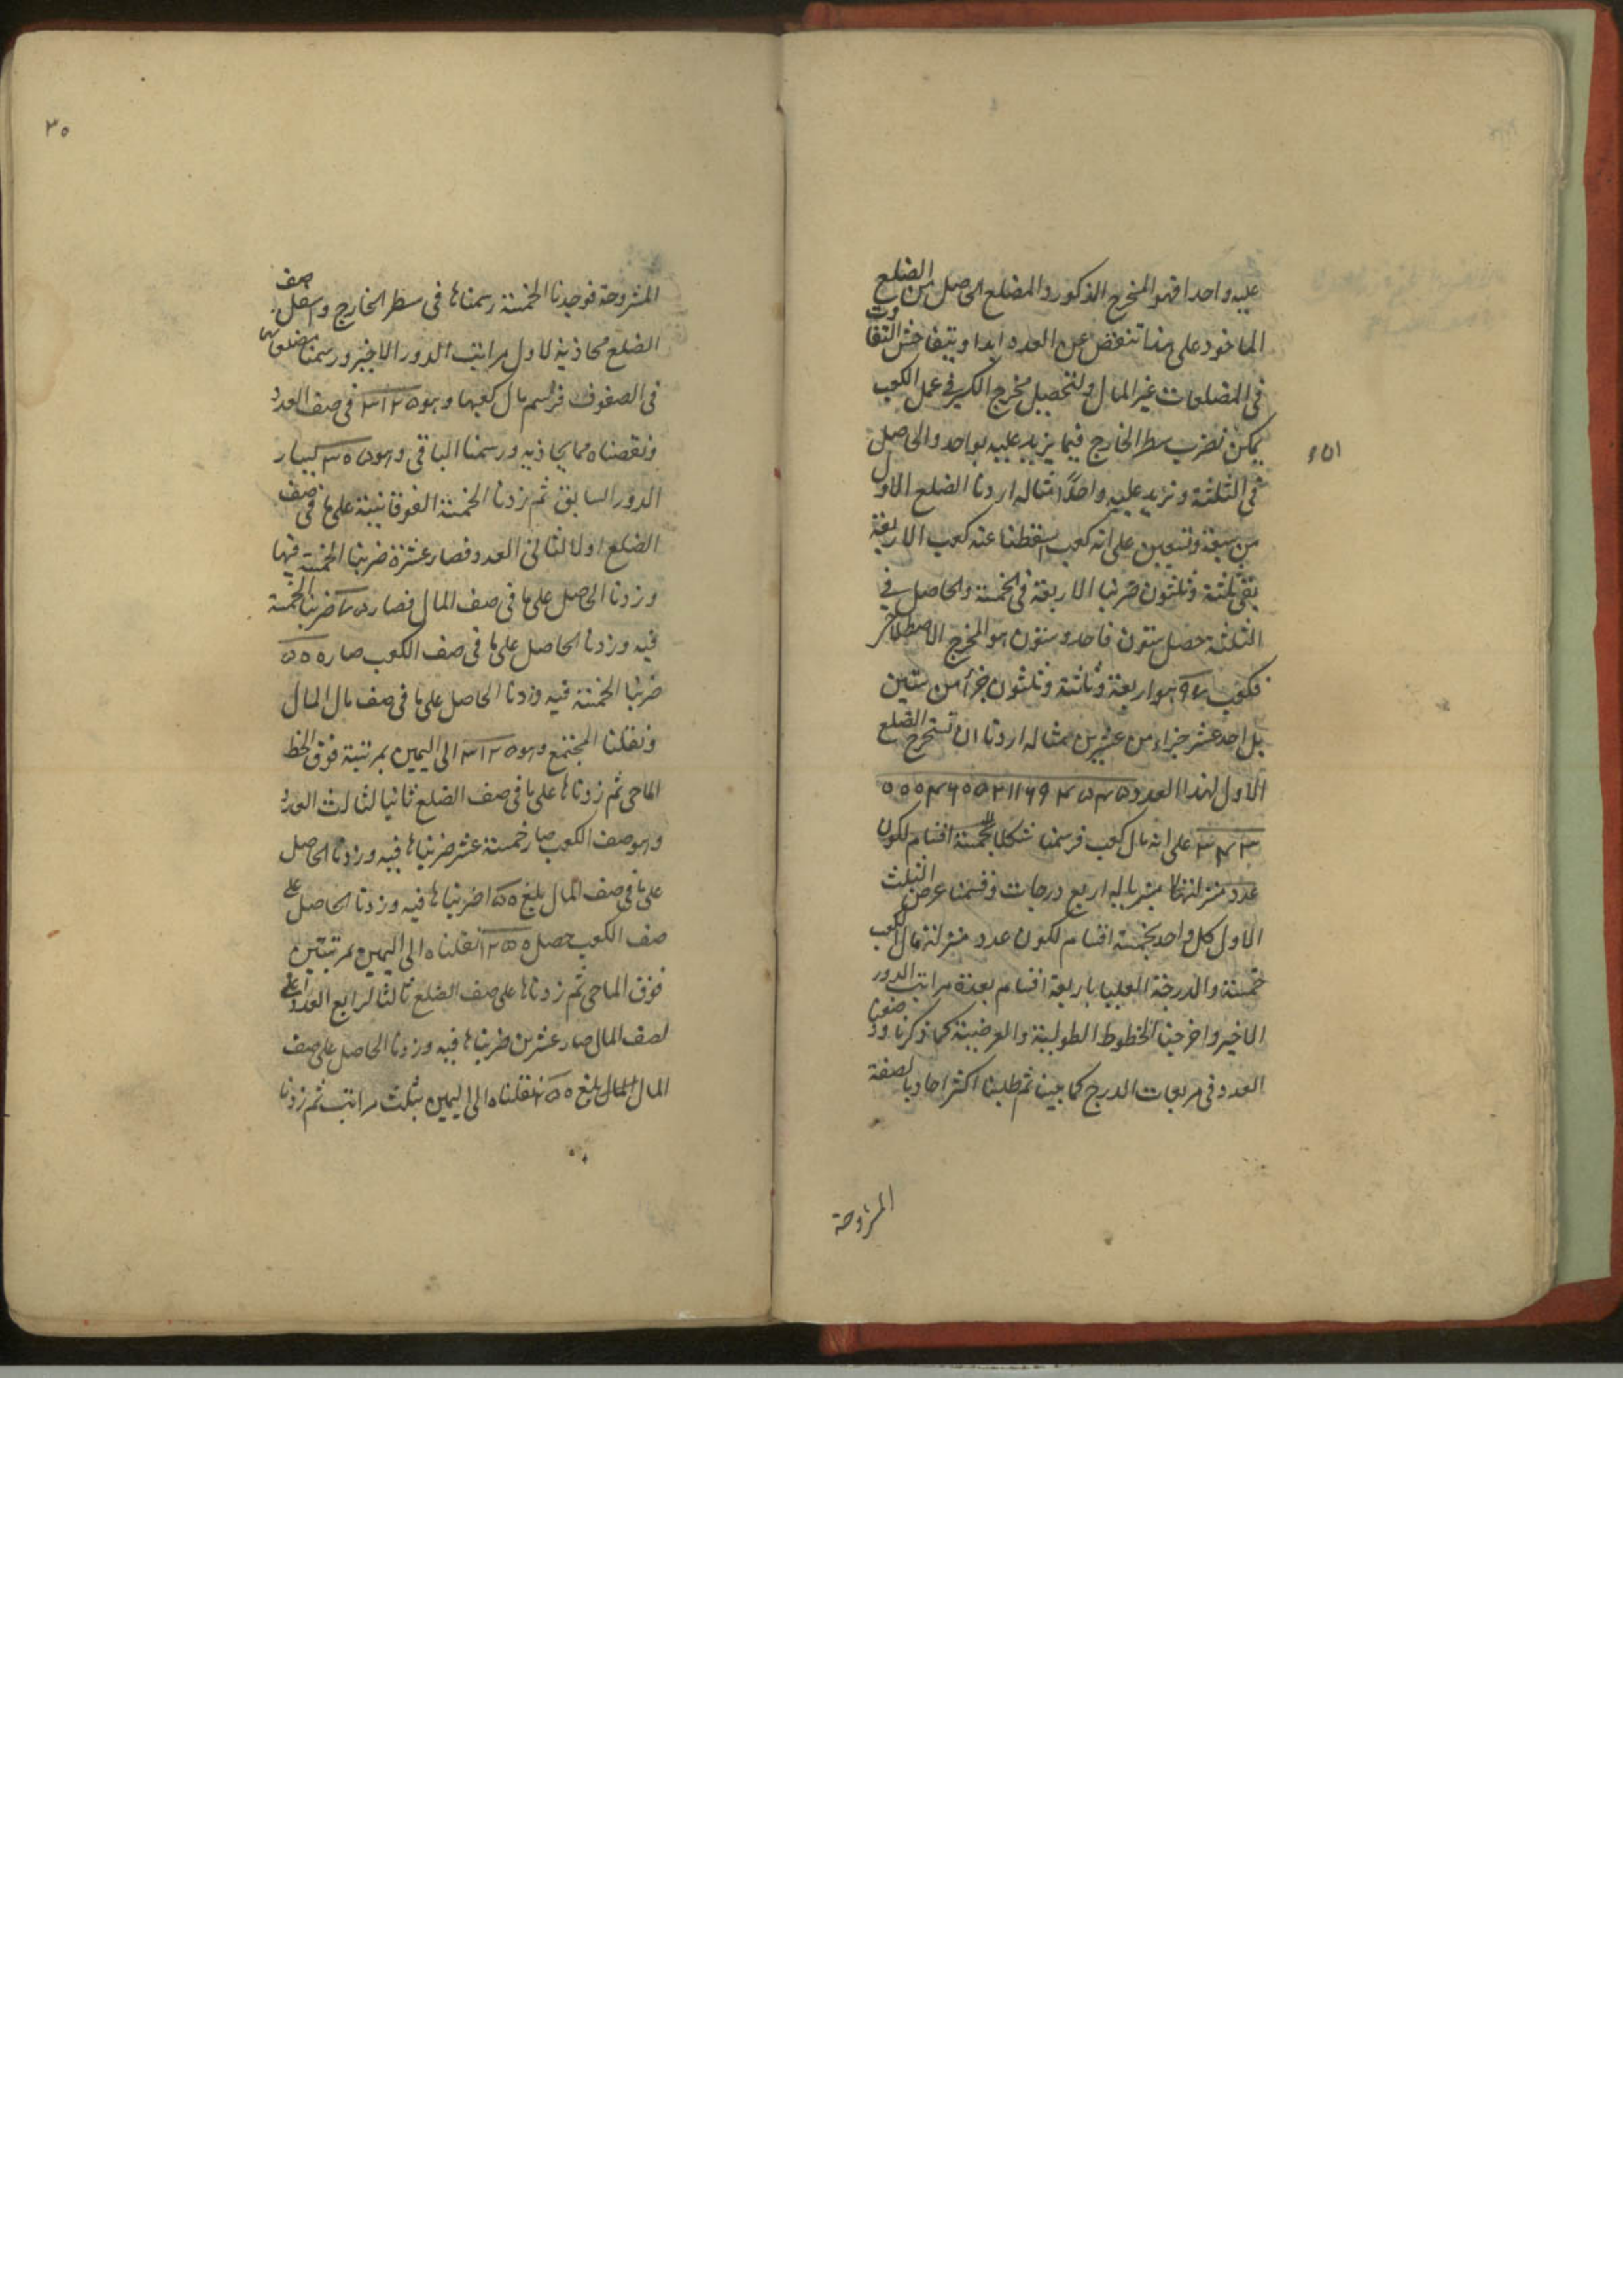 عليه واحدا فهو المخرج المذكور والمضلع الحاصل من الضلع
الماخوذ على هذا تنقص عن العدد ابدا ويتفاحش التفاوت
فى المضلعات غير المال ولتحصيل مخرج الكسر فى عمل الكعب
يمكن نضرب سطر الخارج فيما يزيد عليه بواحد والحاصل
فى الثلثة ونزيد عليه واحدًا مثاله اردنا الضلع الاول
من سبعة وتسعين على انه كعب اسقطنا عنه كعب الاربعة
بقى ثلثة وثلثون ضربنا الاربعة فى الخمسة والحاصل فى
الثلثة حصل ستون فاحد وستون هو المخرج الاصطلاحى
فكعب ٩٧ هو اربعة وثلثة وثلثون جزأ من ستين
بل احد عشر جزاء من عشرين مثاله اردنا ان نستخرج الضلع
الاول لهذا العدد
على انه مال كعب فرسمنا شكلا بخمسة اقسام لكون
عدد منزلته مما يشابه اربع درجات وقسمنا عرض الثلث
الاول كل واحد بخمسة اقسام لكون عدد منزلة مال الكعب
خمسة والدرجة العليا باربعة اقسام بعدة مراتب الدور
الاخير واخرجنا الخطوط الطولية والعرضية كما ذكرنا وضعنا
العدد فى مربعات الدرج كما بينا ثم طلبنا اكثر احاد بالصفة
المشروحة
٣٥
المشروحة فوجدنا الخمسة رسمناها فى سطر الخارج واسفل صف
الضلع محاذية لاول مراتب الدور الاخير ورسمنا مضلعاتها
فى الصفوف فرسم مال كعبها وهو ٣١٢٥ فى صف العدد
ونقصناه مما يحاذيه ورسمنا الباقى وهو يسار
الدور السابق ثم زدنا الخمسة الفوقانية على ما فى صف
الضلع اولا لثانى العدد فصار عشرة ضربنا الخمسة فيها
وزدنا الحاصل على ما فى صف المال فصار ٧٥ ضربنا الخمسة
فيه وزدنا الحاصل على ما فى صف الكعب صار ٥٠٠
ضربنا الخمسة فيه وزدنا الحاصل على ما فى صف مال المال
ونقلنا المجتمع وهو ٣١٢٥ الى اليمين بمرتبة فوق الخط
الماحى ثم زدناها على ما فى صف الضلع ثانيا لثالث العدد
وهو صف الكعب صار خمسة عشر ضربناها فيه وزدنا الحاصل
على ما فى صف المال بلغ ١٥٠ ضربناها فيه وزدنا الحاصل على
صف الكعب حصل ١٢٥٠ نقلناه الى اليمين بمرتبتين
فوق الماحى ثم زدناها على صف الضلع ثالثا لرابع العدد اعنى
لصف المال صار عشرين ضربناها فيه وزدنا الحاصل على صف
المال المال بلغ ٢٥٠ نقلناه الى اليمين بثلث مراتب ثم زدنا